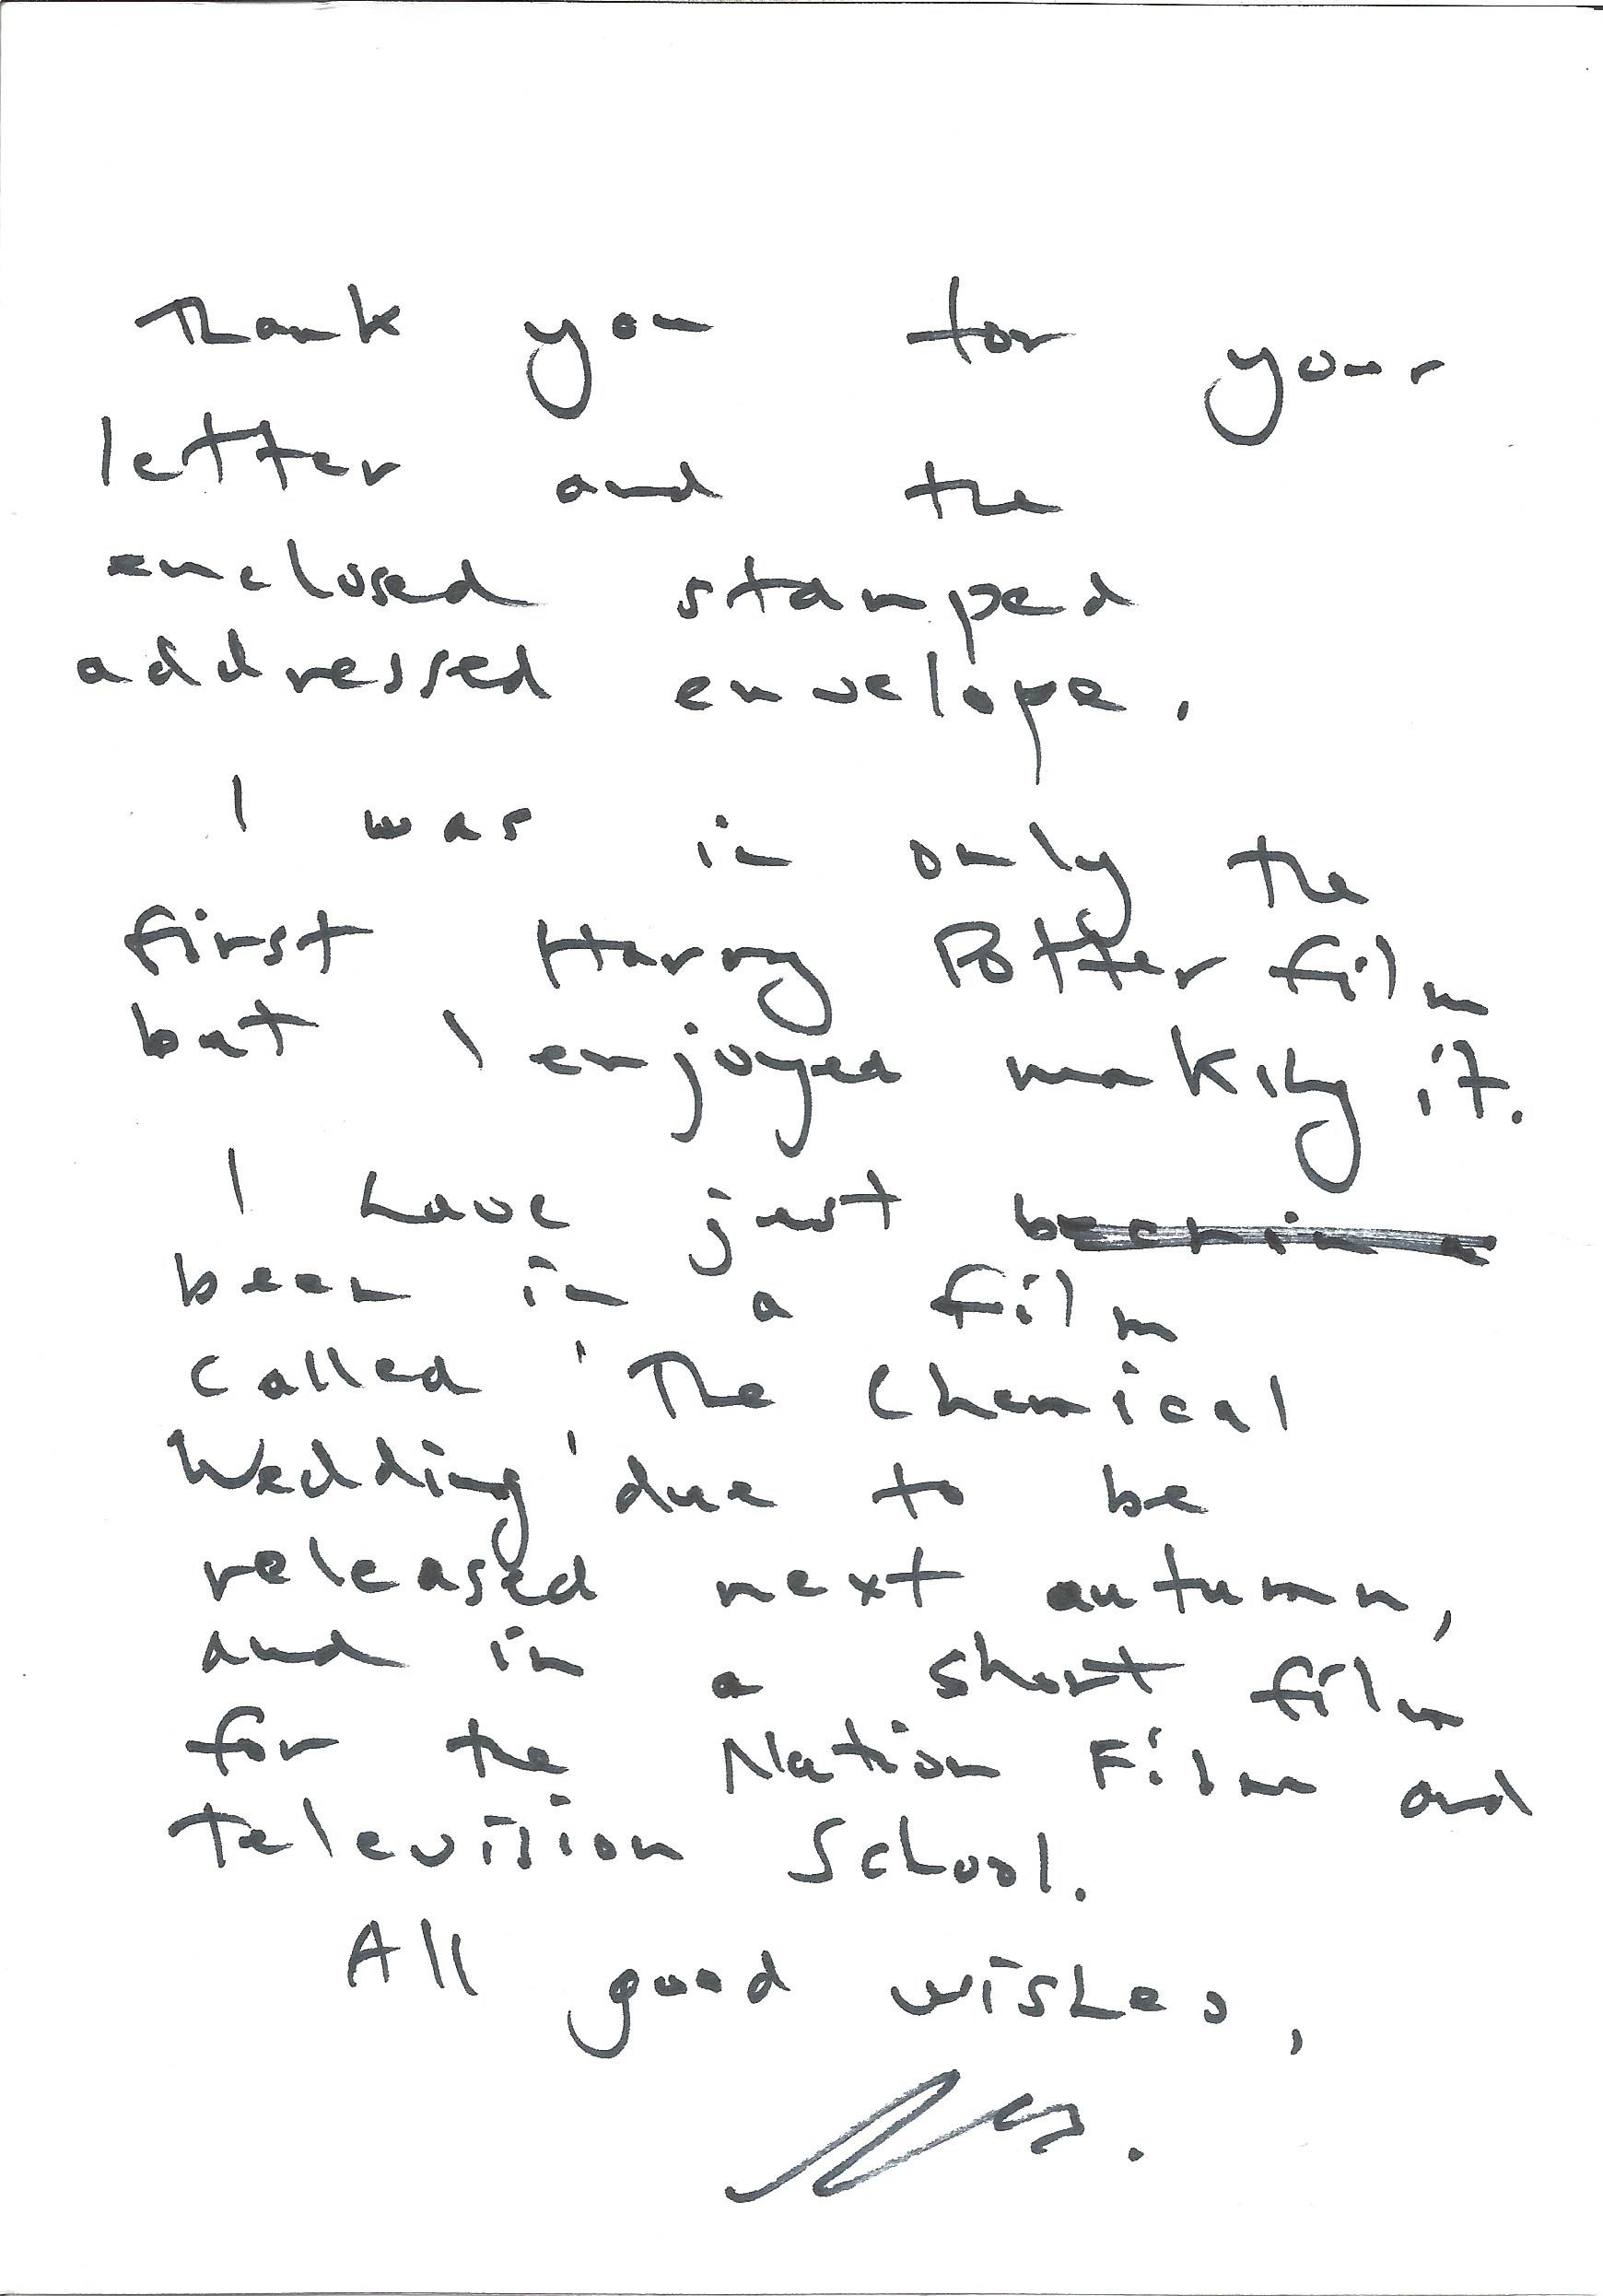 Thank you for your
letter and the
enclosed stamped
addressed envelope.
I was in only the
first Harry Potter film
but I enjoyed making it.
I have just
been in a film
called 'The Chemical
Wedding' due to be
released next autumn,
and in a short film
for the Nation Film and
Television School.
All good wishes,